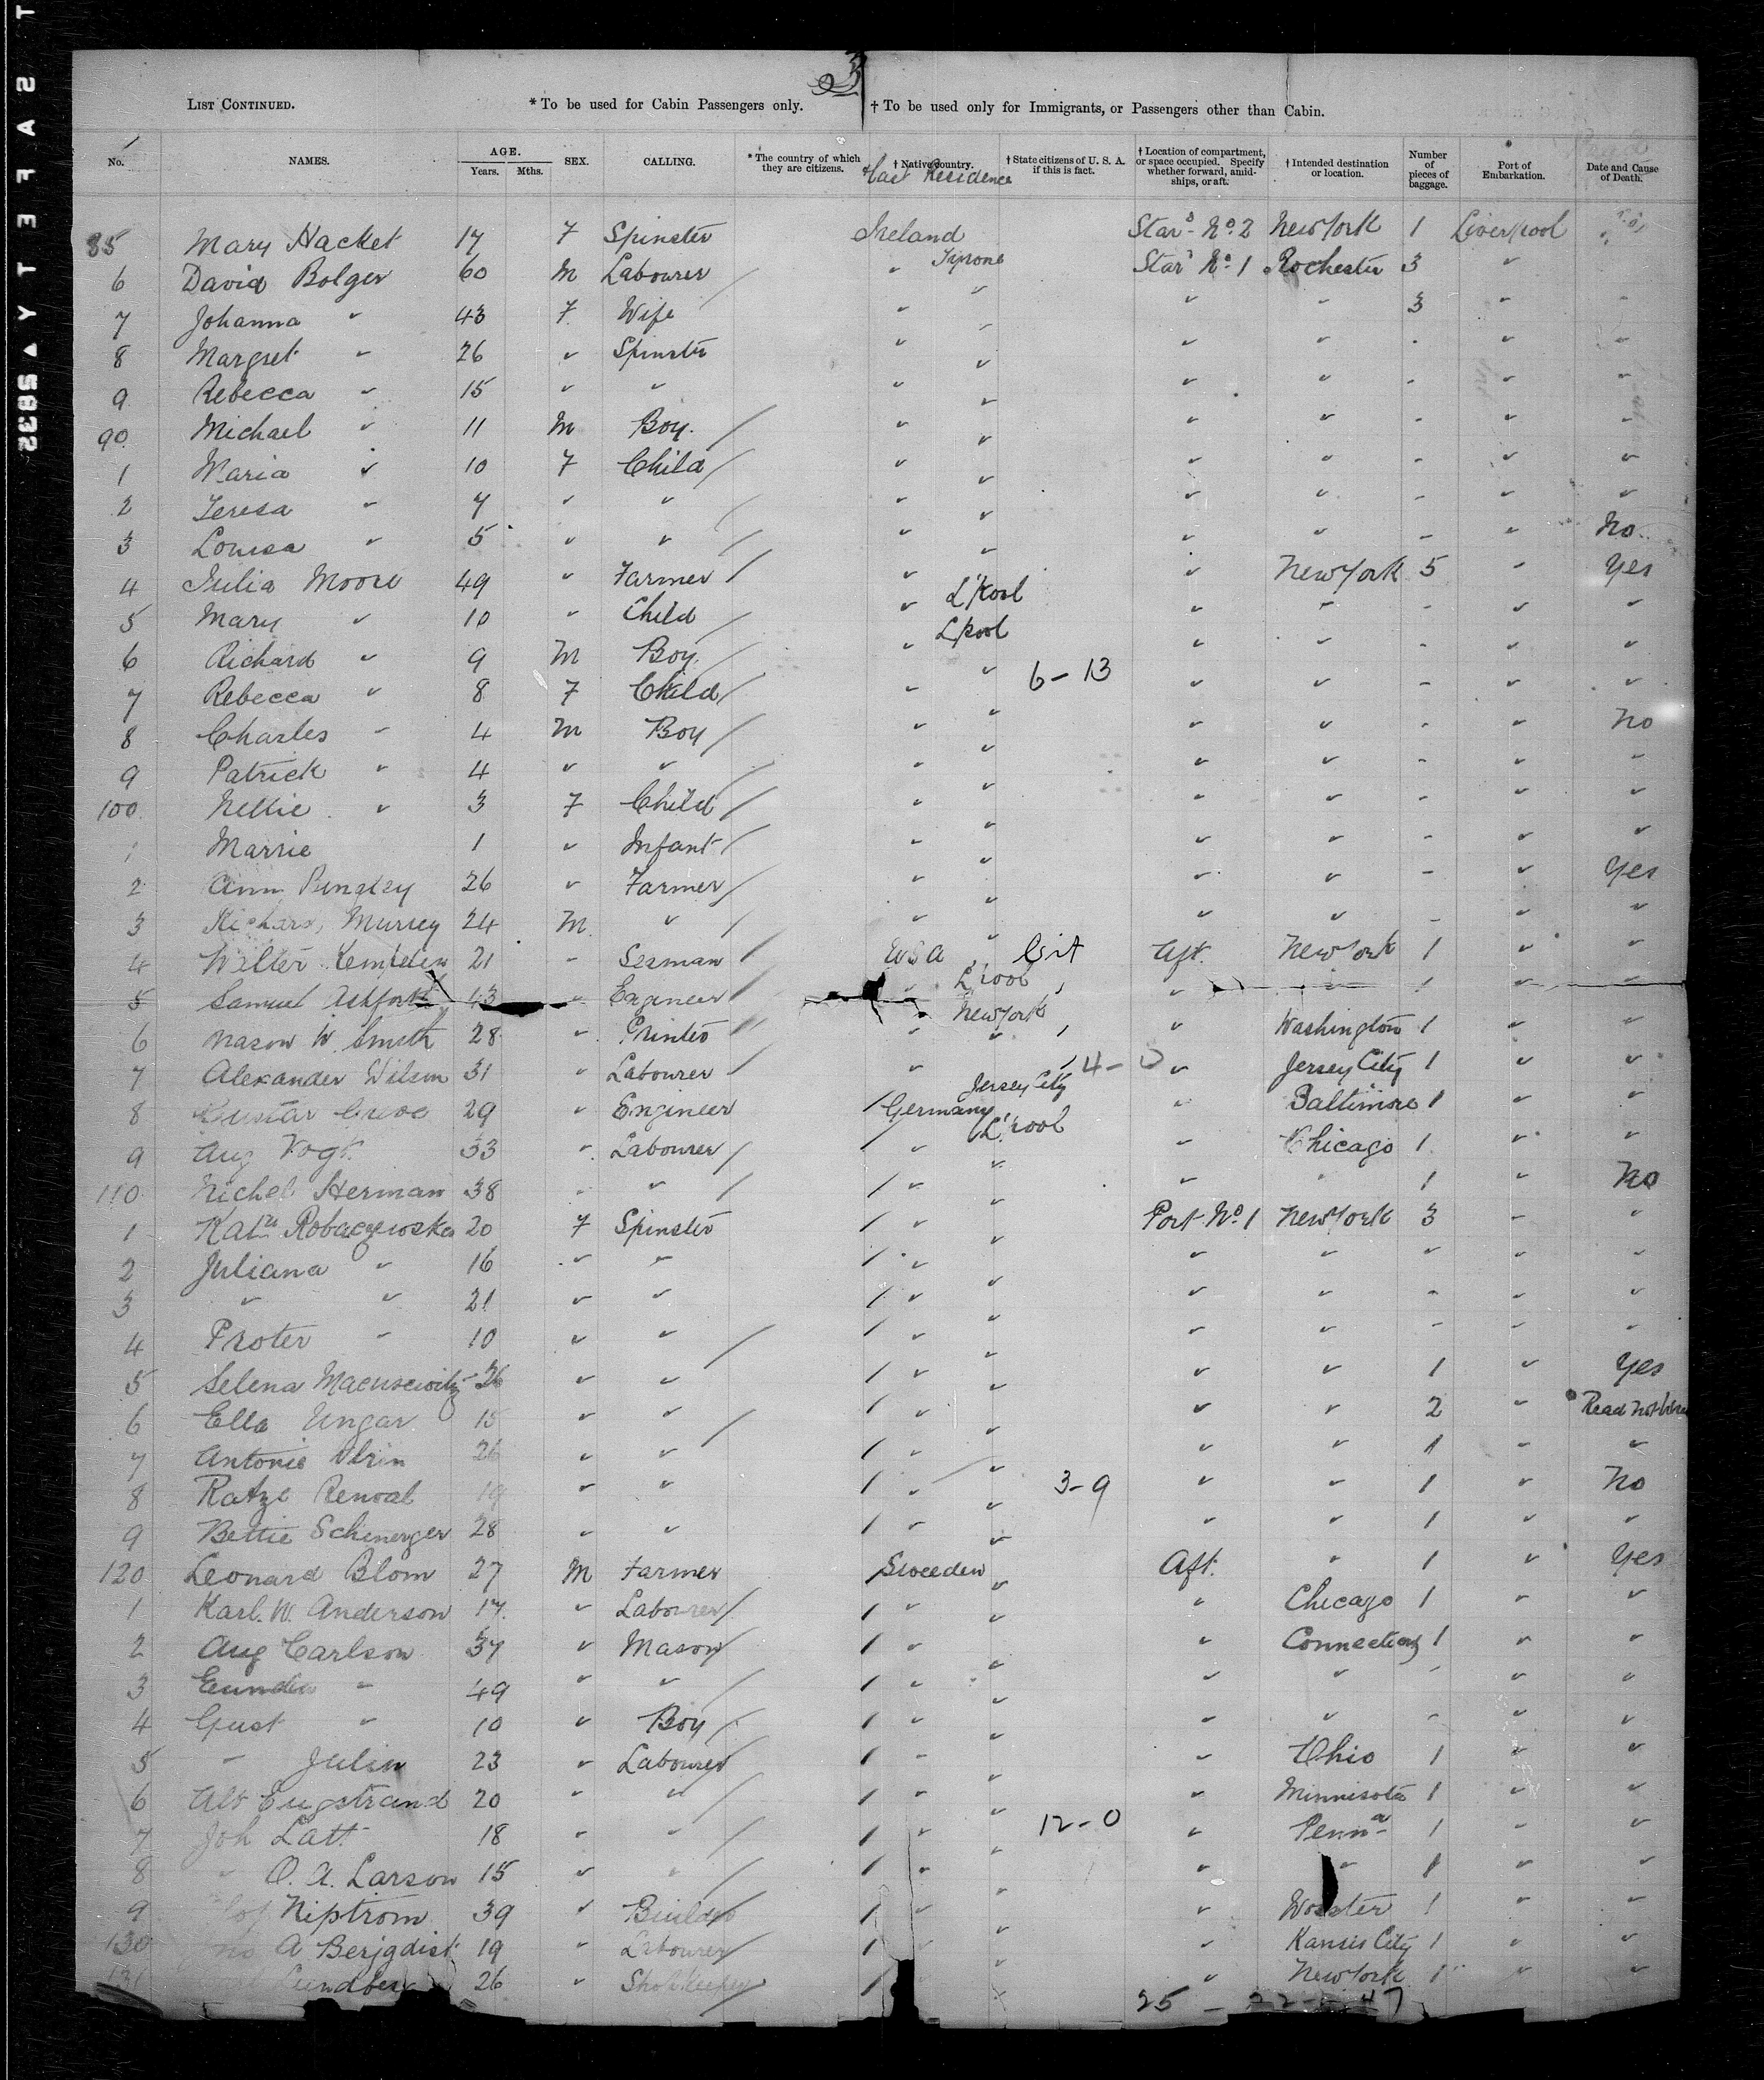 SAFETY ▲ 5832
3
LIST CONTINUED. * To be used for Cabin Passengers only. † To be used only for Immigrants, or Passengers other than Cabin.
No. NAMES. AGE. Years. Mths. SEX. CALLING. * The country of which they are citizens. † Native country. Last Residence † State citizens of U. S. A. if this is fact. † Location of compartment, or space occupied. Specify whether forward, amidships, or aft. † Intended destination or location. Number of pieces of baggage. Port of Embarkation. Date and Cause of Death.
85 Mary Hacket 17 F Spinster Ireland Star^d N^o 2 New York 1 Liverpool
6 David Bolger 60 M Labourer " Tyrone Star^d N^o 1 Rochester 3 "
7 Johanna " 43 F Wife " " " " 3 " "
8 Margret " 26 " Spinster " " " " - " "
9 Rebecca " 15 " " " " " " - " "
90 Michael " 11 M Boy. " " " " - " "
1 Maria " 10 F Child " " " " - " "
2 Teresa " 7 " " " " " " - " "
3 Louisa " 5 " " " " " " - " No.
4 Julia Moore 49 " Farmer " L'Pool " New York 5 " Yes
5 Mary " 10 " Child " L'pool " " - " "
6 Richard " 9 M Boy " " " " - " "
7 Rebecca " 8 F Child " " 6-13 " " - " "
8 Charles " 4 M Boy " " " " - " No
9 Patrick " 4 " " " " " " - " "
100 Nellie " 3 F Child " " " " - " "
1 Marrie 1 " Infant " " " " - " "
2 Ann Bingley 26 " Farmer " " " " - " Yes
3 Richard Murrey 24 M " " " " " - " "
4 Walter 21 " Seaman USA " Cit Aft. New York 1 " "
5 Samuel Ashfort 43 " Engineer " L'pool " " 1 " "
6 Nason W. Smith 28 " Printer " New York " Washington 1 " "
7 Alexander Wilson 31 " Labourer " Jersey City 4- " Jersey City 1 " "
8 29 " Engineer Germany L'pool " Baltimore 1 " "
9 Aug Vogt 33 " Labourer " " " Chicago 1 " "
110 Nichel Herman 38 " " " " " " 1 " No
1 20 F Spinster " " Port N^o 1 New York 3 " "
2 Juliana " 16 " " " " " " " " "
3 " " 21 " " " " " " " " "
4 Proter " 10 " " " " " " - " "
5 Selena 26 " " " " " " 1 " Yes
6 Ella Ungar 15 " " " " " " 2 " Read not
7 Antonie 26 " " " " " " 1 " "
8 Ratze 19 " " " " 3-9 " " 1 " No
9 Bettie Schenerger 28 " " " " " " 1 " "
120 Leonard Blom 27 M Farmer Sweeden " Aft. " 1 " Yes
1 Karl. W. Anderson 17 " Labourer " " " Chicago 1 " "
2 Aug Carlson 37 " Mason " " " 1 " "
3 " 49 " " " " " " " " "
4 Gust " 10 " Boy " " " " - " "
5 " Julin 23 " Labourer " " " Ohio 1 " "
6 Alb Engstrand 20 " " " " " Minnisota 1 " "
7 Joh Latt 18 " " " " 12-0 " Penn^a 1 " "
8 " O. A. Larson 15 " " " " " " 1 " "
9 Niptrom 39 " Builder " " " 1 " "
130 A Berjgdist 19 " Labourer " " " Kansis City 1 " "
131 Lundberg 26 " " " " New York 1 " "
25 - 22 - 47